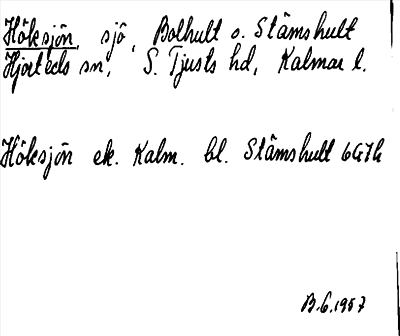 Höksjön, sjö, Bolhult o. Stämshult
Hjorteds sn, S. Tjusts hd, Kalmar l.
Höksjön ek. Kalm. bl. Stämshult 6G7h
B.6.1957